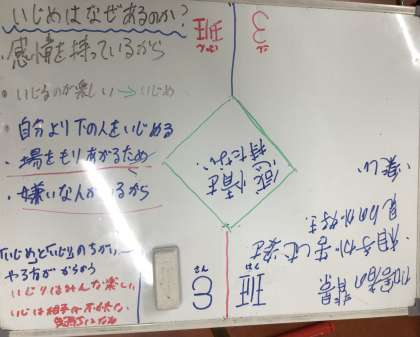 いじめはなぜあるのか?
・感情を持っているから
・いじるのが楽しい→いじめ
・自分より下の人をいじめる
・場をもりあがるため
・嫌いな人がいるから
いじめといじりのちがい
やる方が
いじりはみんな楽しい
いじめは相手が
3班
感情を
持たない
さん
3班
加害者の背景
・相手が苦しむ姿を
見るのが好き
・楽しい